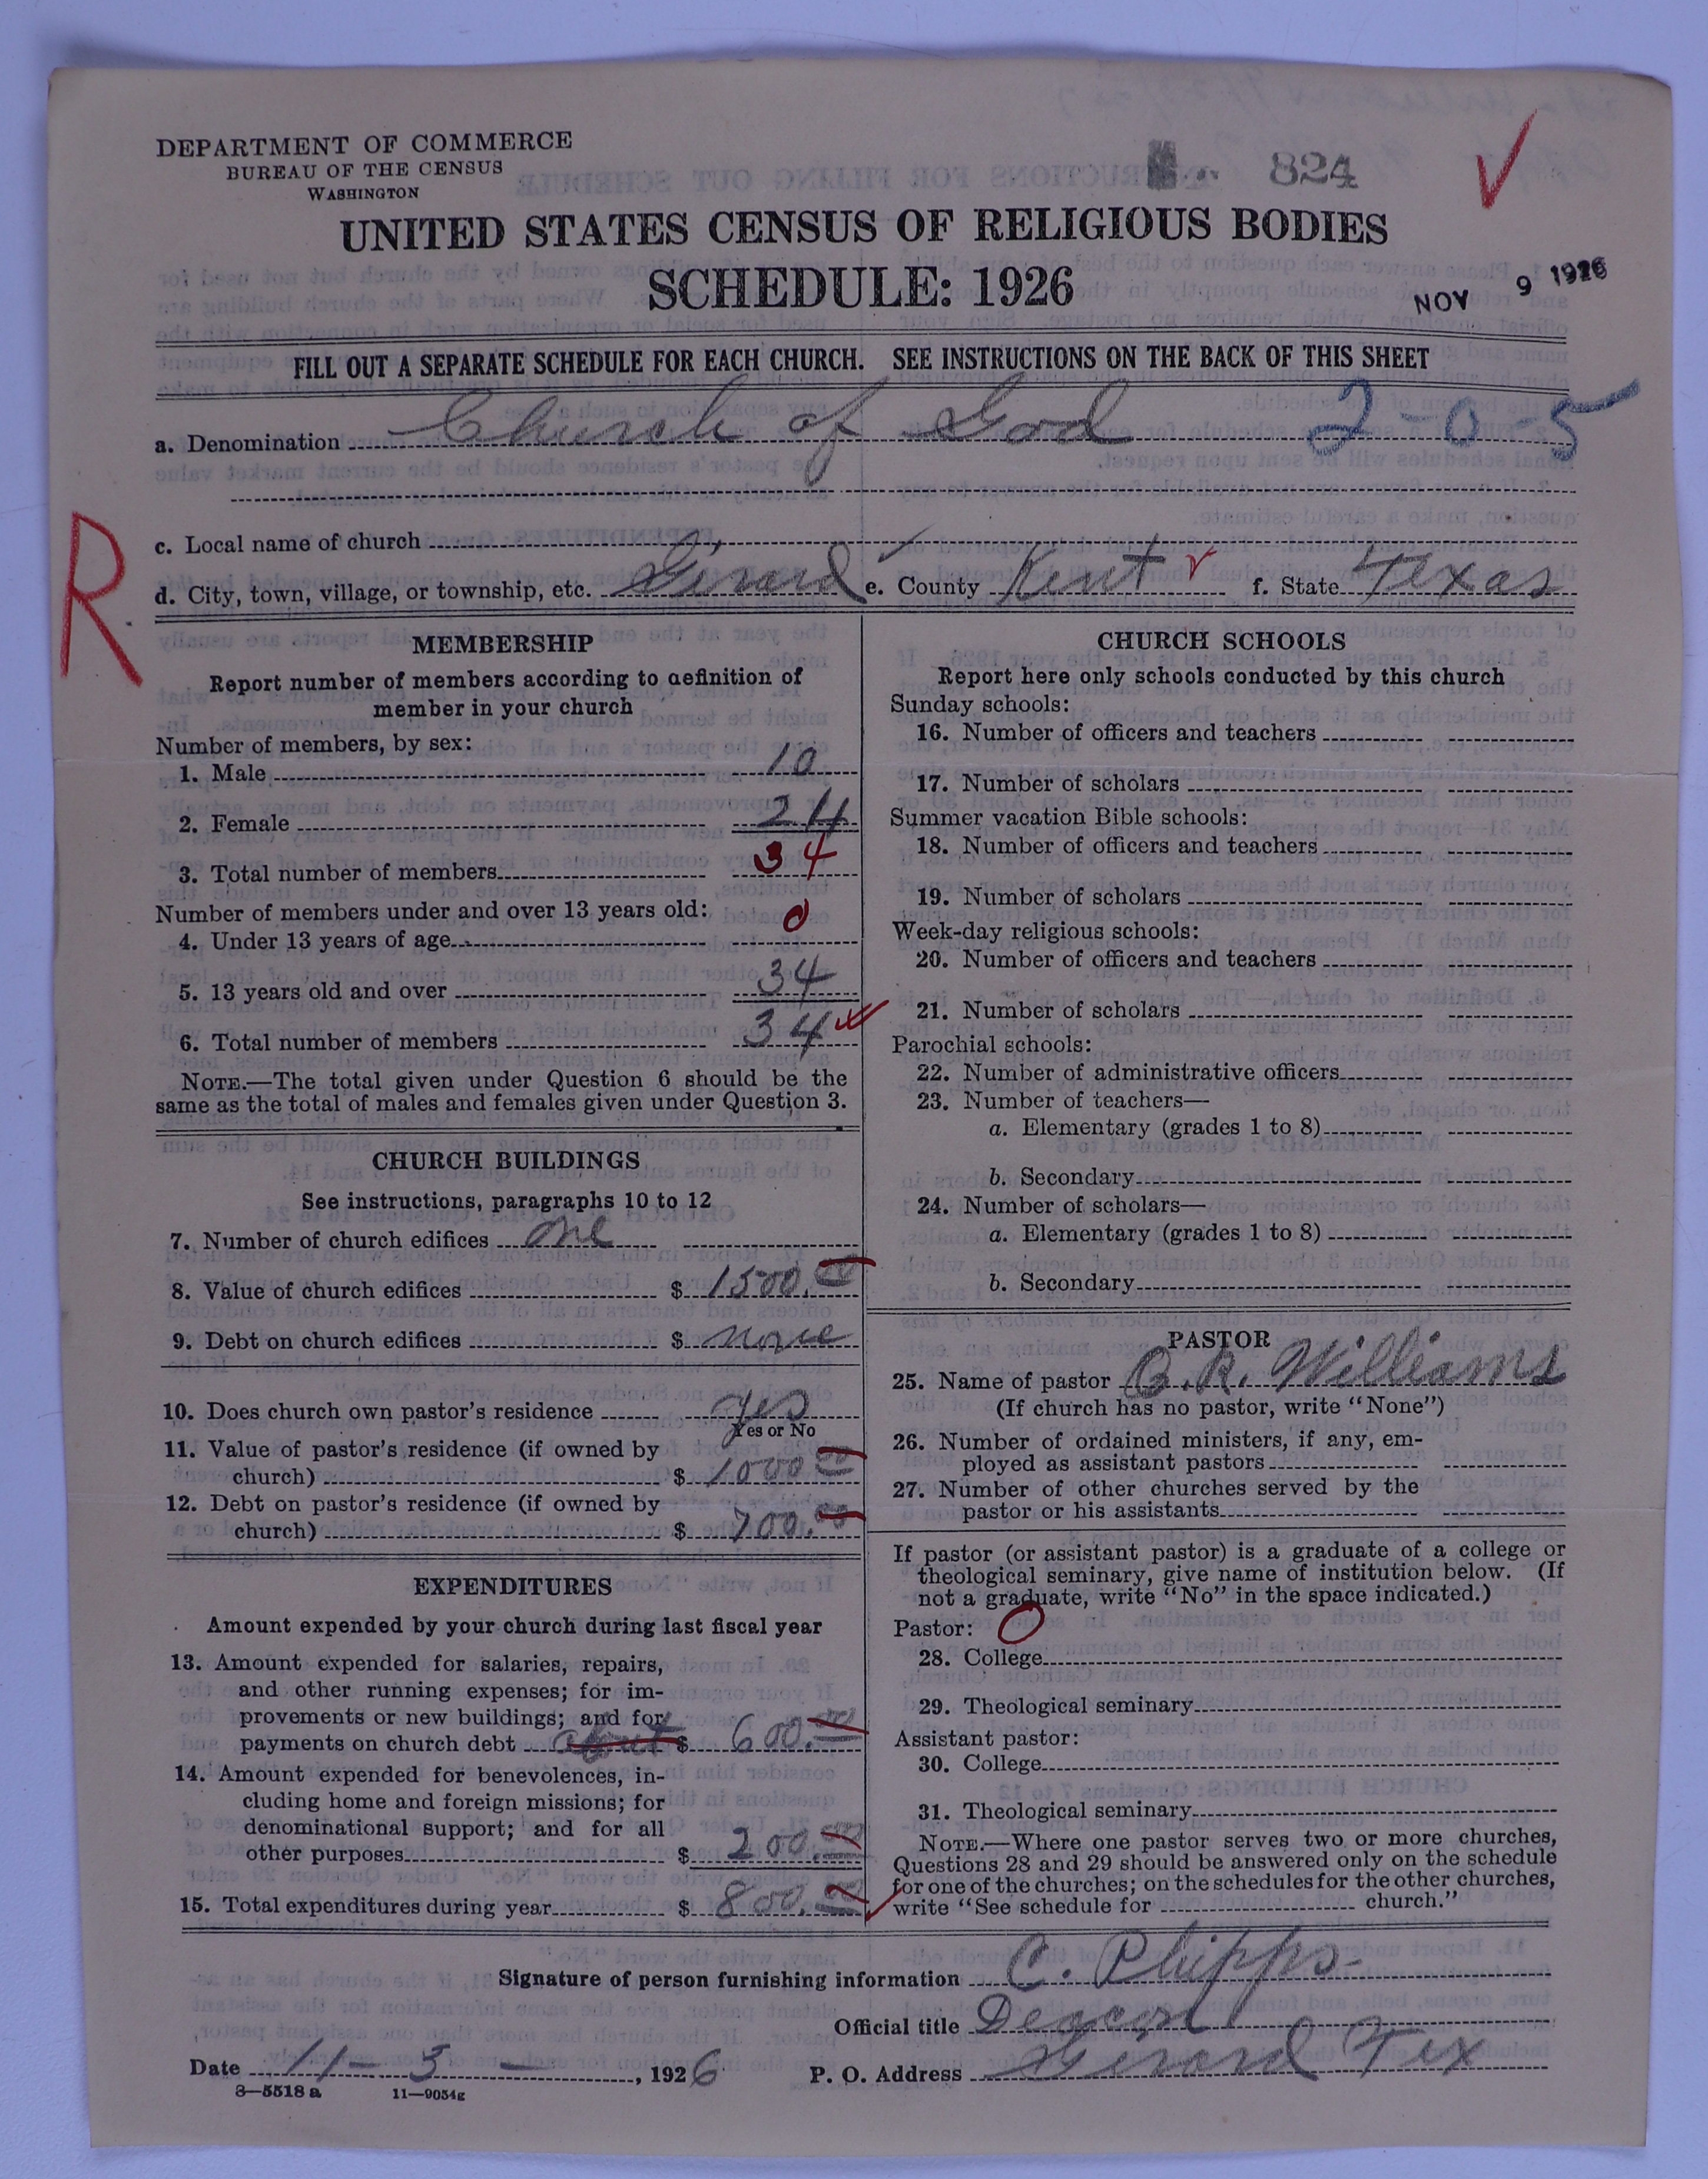 DEPARTMENT OF COMMERCE
BUREAU OF THE CENSUS
WASHINGTON
824
UNITED STATES CENSUS OF RELIGIOUS BODIES
SCHEDULE: 1926
NOV 9 1926
FILL OUT A SEPARATE SCHEDULE FOR EACH CHURCH. SEE INSTRUCTIONS ON THE BACK OF THIS SHEET
a. Denomination Church of God 2-0-5
c. Local name of church
R
d. City, town, village, or township, etc. Girard e. County Kent f. State Texas
MEMBERSHIP
Report number of members according to definition of
member in your church
Number of members, by sex:
1. Male 10
2. Female 24
3. Total number of members 34
Number of members under and over 13 years old:
4. Under 13 years of age 0
5. 13 years old and over 34
6. Total number of members 34
NOTE.—The total given under Question 6 should be the
same as the total of males and females given under Question 3.
CHURCH BUILDINGS
See instructions, paragraphs 10 to 12
7. Number of church edifices one
8. Value of church edifices $ 1500.00
9. Debt on church edifices $ none
10. Does church own pastor's residence yes
Yes or No
11. Value of pastor's residence (if owned by
church) $ 1000 00
12. Debt on pastor's residence (if owned by
church) $ 700.00
EXPENDITURES
Amount expended by your church during last fiscal year
13. Amount expended for salaries, repairs,
and other running expenses; for im-
provements or new buildings; and for
payments on church debt about $ 600.00
14. Amount expended for benevolences, in-
cluding home and foreign missions; for
denominational support; and for all
other purposes $ 200.00
15. Total expenditures during year $ 800.00
CHURCH SCHOOLS
Report here only schools conducted by this church
Sunday schools:
16. Number of officers and teachers
17. Number of scholars
Summer vacation Bible schools:
18. Number of officers and teachers
19. Number of scholars
Week-day religious schools:
20. Number of officers and teachers
21. Number of scholars
Parochial schools:
22. Number of administrative officers
23. Number of teachers—
a. Elementary (grades 1 to 8)
b. Secondary
24. Number of scholars—
a. Elementary (grades 1 to 8)
b. Secondary
PASTOR
25. Name of pastor R. Williams
(If church has no pastor, write "None")
26. Number of ordained ministers, if any, em-
ployed as assistant pastors
27. Number of other churches served by the
pastor or his assistants
If pastor (or assistant pastor) is a graduate of a college or
theological seminary, give name of institution below. (If
not a graduate, write "No" in the space indicated.)
Pastor: 0
28. College
29. Theological seminary
Assistant pastor:
30. College
31. Theological seminary
NOTE.—Where one pastor serves two or more churches,
Questions 28 and 29 should be answered only on the schedule
for one of the churches; on the schedules for the other churches,
write "See schedule for church."
Signature of person furnishing information C. Phipps
Official title Deacon
Date 11-5-, 1926 P. O. Address Girard Tex
8—5518 a 11—9054g